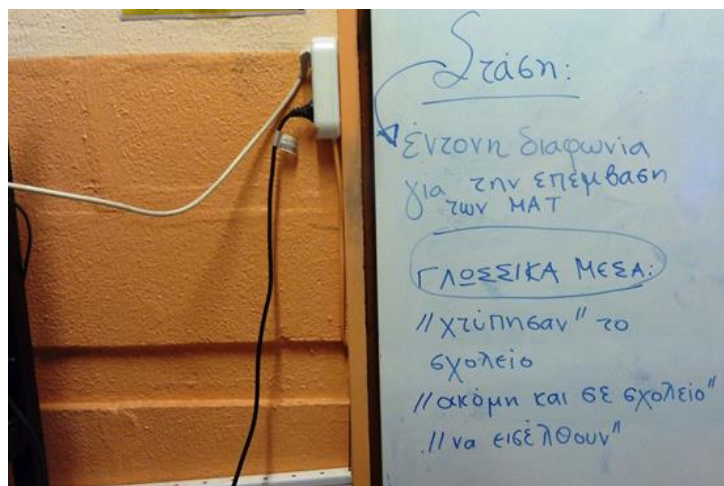 Στάση:
έντονη διαφωνία
για την επέμβαση
των ΜΑΤ
ΓΛΩΣΣΙΚΑ ΜΕΣΑ:
"χτύπησαν" το
σχολείο
"ακόμη και σε σχολείο"
"να εισέλθουν"